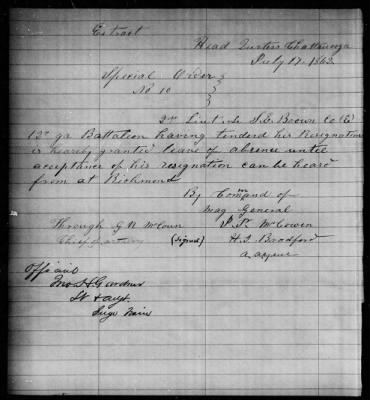 Extract
Head Qurters Chattanooga
July 17. 1862.
Special Order
No 10
2nd Lieut J.L. Brown Co (E)
12th ga Battalion having tenderd his Resignation
is hearby granted leave of absence until
acceptance of his resignation can be heard
from at Richmond
By Comand of
Mag General
Through G R McCown J.P. McCown
Chief of (Signed) H.L. Bradford
a.
Official
Jno. S. Gardner
Lt & adjt